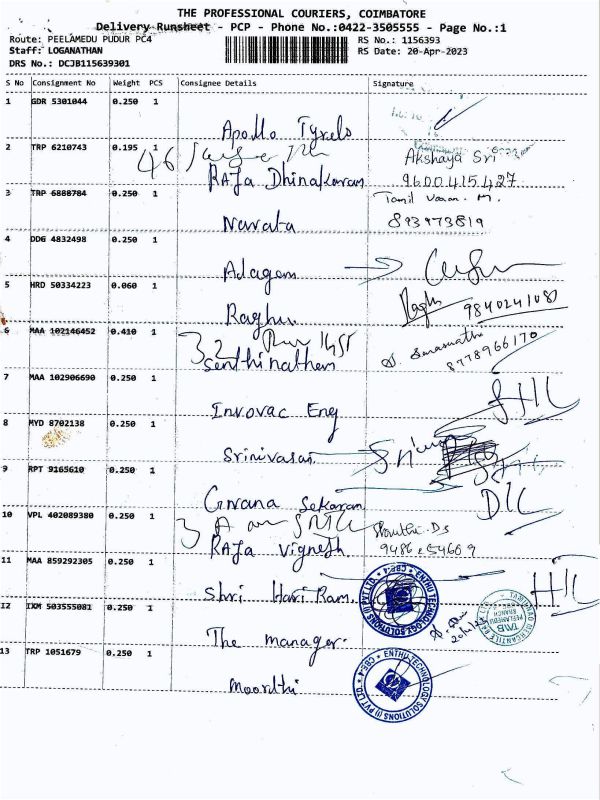 THE PROFESSIONAL COURIERS, COIMBATORE
Delivery Runsheet - PCP - Phone No.:0422-3505555 - Page No.:1
Route: PEELAMEDU PUDUR PC4
RS No.: 1156393
Staff: LOGANATHAN
RS Date: 20-Apr-2023
DRS No.: DCJB115639301
S No Consignment No Weight PCS Consignee Details Signature
1 GDR 5301044 0.250 1
Apollo Tyrels
2 TRP 6210743 0.195 1
Akshaya Sri
46
Raja Dhinakaran 9600415427
3 TRP 6888784 0.250 1
Tamil Vanan. M.
Navata 893973819
4 DDG 4832498 0.250 1
Adagam
5 HRD 50334223 0.060 1
Raghu 9840241081
Raghu
6 MAA 102146452 0.410 1
32
8778966170
Senthinathan
7 MAA 102906690 0.250 1
Innovac Eng
8 MYD 8702138 0.250 1
Srinivasan
9 RPT 9165610 0.250 1
Gnana Sekaran
10 VPL 402089380 0.250 1
Raja Vignesh
11 MAA 859292305 0.250 1
Shri Hari Ram.
ENTHU TECHNOLOGY SOLUTIONS (I) PVT LTD. CBE-4
TAMILNAD MERCANTILE BANK LTD.
TMB
PEELAMEDU
BRANCH
12 IXM 503555081 0.250 1
The manager.
13 TRP 1051679 0.250 1
ENTHU TECHNOLOGY SOLUTIONS (I) PVT LTD. CBE-4
Moorthi